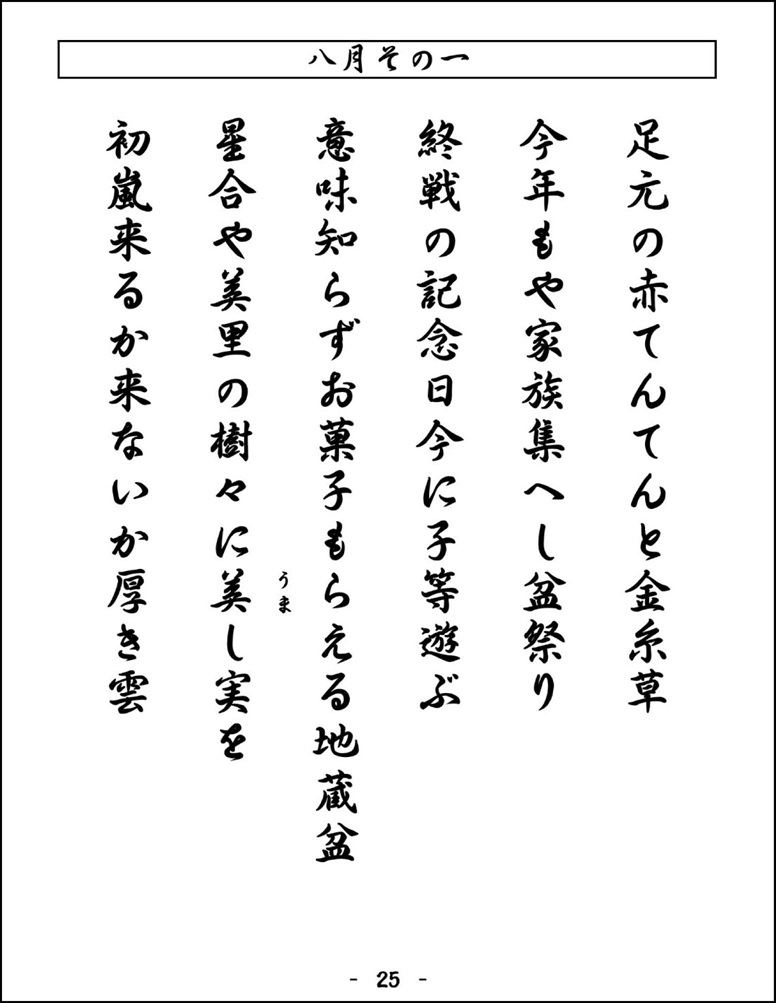 八月その一
足元の赤てんてんと金糸草
今年もや家族集へし盆祭り
終戦の記念日今に子等遊ぶ
意味知らずお菓子もらえる地蔵盆
星合や美里の樹々に美し実を
うま
初嵐来るか来ないか厚き雲
- 25 -